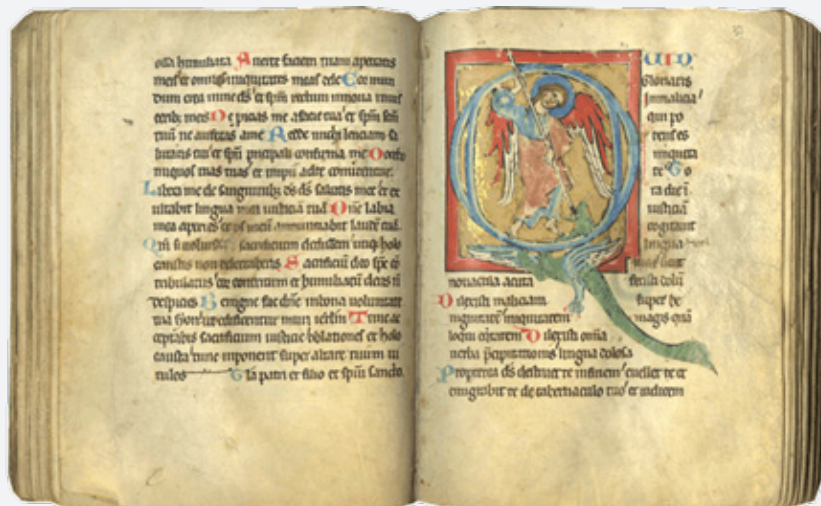 ossa humiliata Auerte faciem tuam apeccatis
meis et omnes iniquitates meas dele Cor mun
dum crea inme ds et spm rectum innoua
meis Ne proicias me afacie tua et spm scm
tuum ne auferas ame Redde michi leticiam sa
lutaris tui et spu principali confirma me Docebo
iniquos uias tuas et impii adte conuertentur
Libera me de sanguinibz ds ds salutis mee et ex
ultabit lingua mea iusticia tua Dne labia
mea aperies et os meum annuntiabit laude tua
Qm si uoluisses sacrificium dedissem utiqz holo
caustis non delectaberis Sacrificium deo sps
cor contritum et humiliatu deus n
despicies Benigne fac dne inbona uoluntate
tua syon ut edificentur muri ierlm Tunc ac
ceptabis sacrificium iusticie oblationes et holo
causta tunc imponent super altare tuum ui
tulos Gla patri et filio et spui sancto
QUID
Gloriaris
inmalicia
qui po
tens es
iniquita
te To
ta die i
iusticia
cogitauit
lingua
sicut
nouacula acuta fecisti dolu
Dilexisti maliciam super be
nignitate iniquitatem magis qua
loqui equitatem Dilexisti omia
uerba precipitationis lingua dolosa
Propterea ds destruet te infinem euellet te et
emigrabit te de tabernaculo tuo et radicem